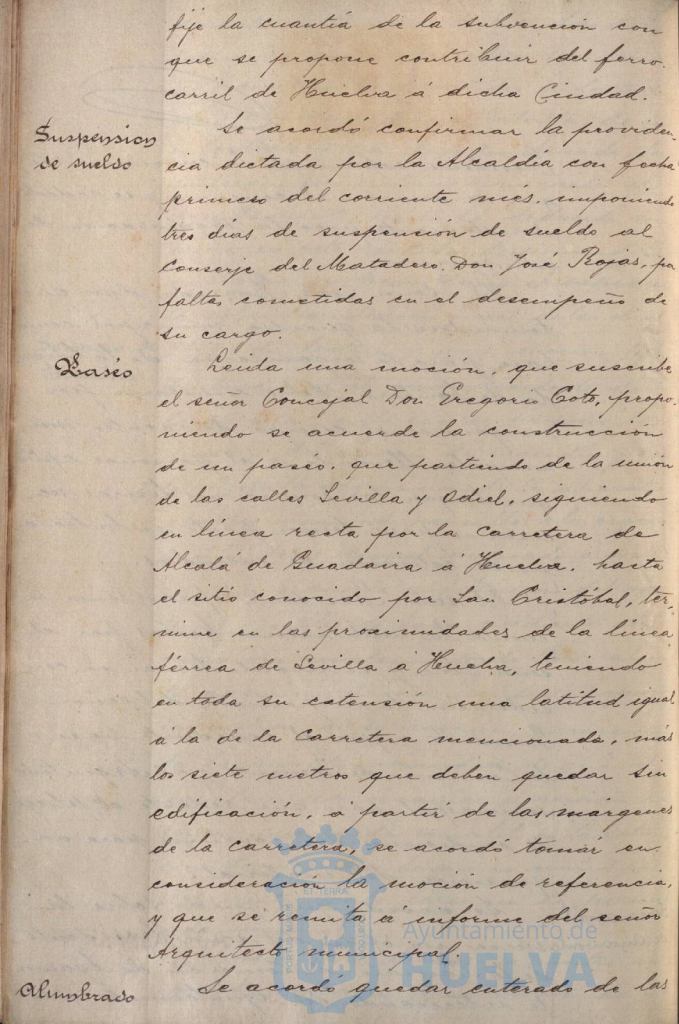 fije la cuantía de la subvención con
que se propone contribuir del ferro-
carril de Huelva á dicha Ciudad.
Suspension
de sueldo
Se acordó confirmar la providen-
cia dictada por la Alcaldía con fecha
primero del corriente més, imponiendo
tres días de suspensión de sueldo al
Conserje del Matadero, Don José Rojas, por
faltas cometidas en el desempeño de
su cargo.
Paséo
Leida una moción, que suscribe
el señor Concejal Don Gregorio Coto, propo-
niendo se acuerde la construcción
de un paséo, que partiendo de la unión
de las calles Sevilla y Odiel, siguiendo
en línea recta por la carretera de
Alcalá de Guadaira á Huelva, hasta
el sitio conocido por San Cristóbal, ter-
mine en las proximidades de la línea
férrea de Sevilla á Huelva, teniendo
en toda su extensión una latitud igual
á la de la carretera mencionada, más
los siete metros que deben quedar sin
edificación, á partir de las márgenes
de la carretera, se acordó tomár en
consideración la moción de referencia,
y que se remita á informe del señor
Arquitecto municipal.
Alumbrado
Se acordo quedar enterado de las
Ayuntamiento de
HUELVA